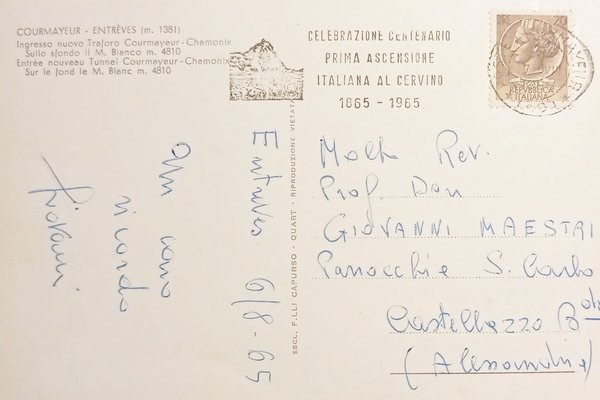 COURMAYEUR - ENTRÈVES (m. 1381)
Ingresso nuovo Traforo Courmayeur-Chamonix
Sullo sfondo il M. Bianco m. 4810
Entrée nouveau Tunnel Courmayeur-Chamonix
Sur le fond le M. Blanc m. 4810
CELEBRAZIONE CENTENARIO
PRIMA ASCENSIONE
ITALIANA AL CERVINO
1865 - 1965
Entreves 6/8-65
Un caro
ricordo
EDIZ. F.LLI CAPURSO - QUART - RIPRODUZIONE VIETATA
Molto Rev.
Prof. Don
GIOVANNI MAESTRI
Parrocchia S. Carlo
Castellazzo B.da
(Alessandria)